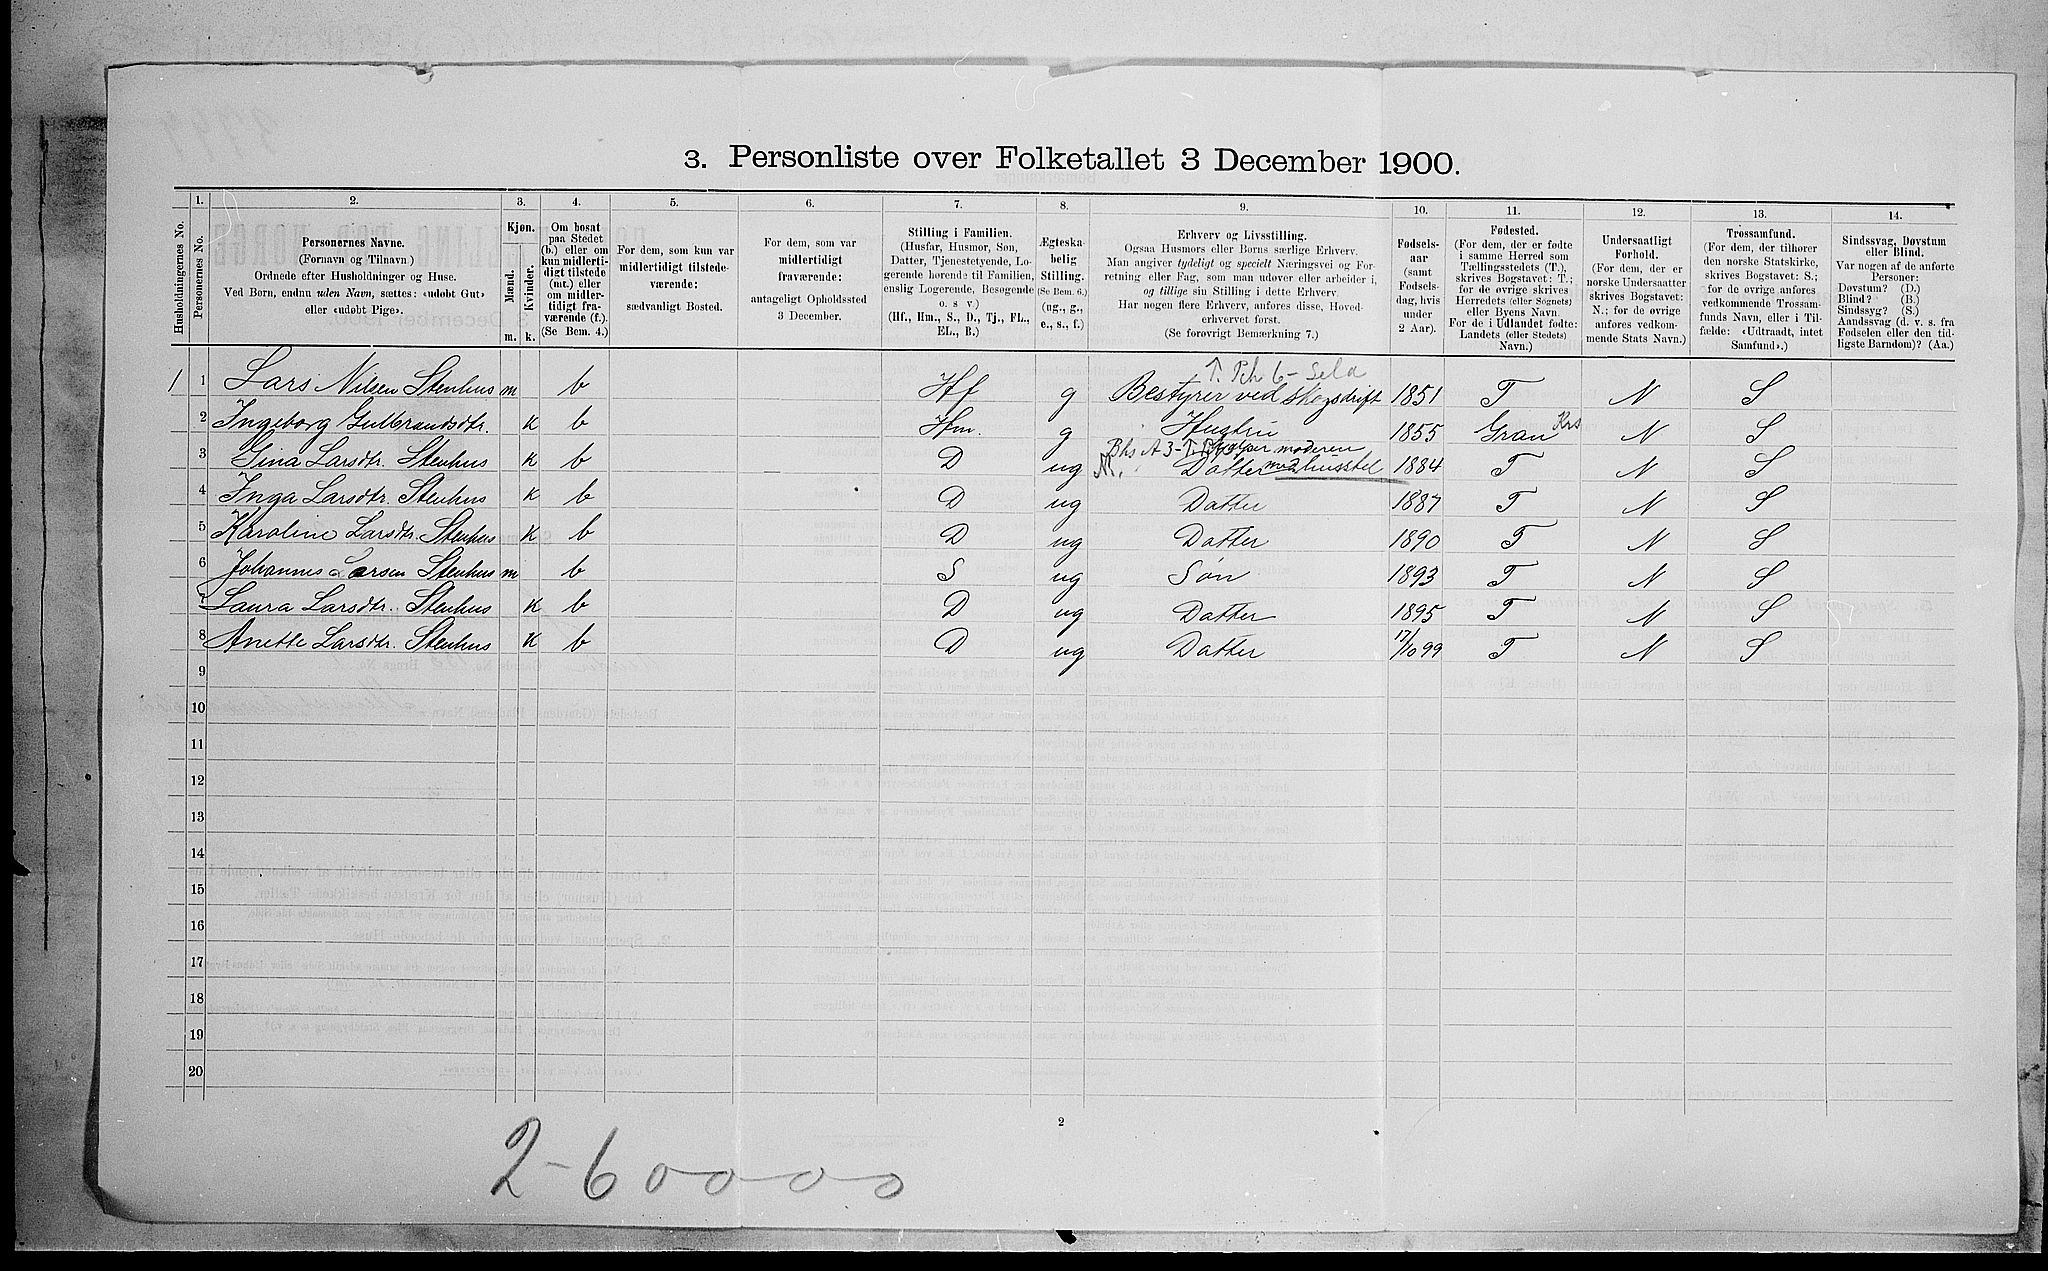 3. Personliste over Folketallet 3 December 1900.
1. 2. 3. 4. 5. 6. 7. 8. 9. 10. 11. 12. 13. 14.
Husholdningernes No.
Personernes No.
Personernes Navne.
(Fornavn og Tilnavn)
Ordnede efter Husholdninger og Huse.
Ved Børn, endnu uden Navn, sættes: «udøbt Gut»
eller «udøbt Pige».
Kjøn.
Mænd.
Kvinder.
m. k.
Om bosat
paa Stedet
(b.) eller om
kun midlerti-
digt tilstede
(mt.) eller
om midler-
tidigt fra-
værende (f.).
(Se Bem. 4.)
For dem, som kun var
midlertidigt tilstede-
værende:
sædvanligt Bosted.
For dem, som var
midlertidigt
fraværende:
antageligt Opholdssted
3 December.
Stilling i Familien.
(Husfar, Husmor, Søn,
Datter, Tjenestetyende, Lo-
gerende hørende til Familien,
enslig Logerende, Besøgende
o. s. v.)
(Hf., Hm., S., D., Tj., FL.,
EL., B.)
Ægteska-
belig
Stilling.
(Se Bem. 6.)
(ug., g.,
e., s., f.)
Erhverv og Livsstilling.
Ogsaa Husmors eller Børns særlige Erhverv.
Man angiver tydeligt og specielt Næringsvei og For-
retning eller Fag, som man udøver eller arbeider i,
og tillige sin Stilling i dette Erhverv.
Har nogen flere Erhverv, anføres disse, Hoved-
erhvervet først.
(Se forøvrigt Bemærkning 7.)
Fødsels-
aar
(samt
Fødsels-
dag, hvis
under
2 Aar).
Fødested.
(For dem, der er fødte
i samme Herred som
Tællingsstedets (T.),
skrives Bogstavet: T.;
for de øvrige skrives
Herredets (eller Sognets)
eller Byens Navn.
For de i Udlandet fødte:
Landets (eller Stedets)
Navn.)
Undersaatligt
Forhold.
(For dem, der er
norske Undersaatter
skrives Bogstavet:
N.; for de øvrige
anføres vedkom-
mende Stats Navn.)
Trossamfund.
(For dem, der tilhører
den norske Statskirke,
skrives Bogstavet: S.;
for de øvrige anføres
vedkommende Trossam-
funds Navn, eller i Til-
fælde: «Udtraadt, intet
Samfund».)
Sindssvag, Døvstum
eller Blind.
Var nogen af de anførte
Personer:
Døvstum? (D.)
Blind? (B.)
Sindssyg? (S.)
Aandssvag (d. v. s. fra
Fødselen eller den tid-
ligste Barndom)? (Aa.)
1 1 Lars Nilsen Stenhus m b Hf g Bestyrer ved skogsdrift 1851 T N S
2 Ingeborg Gulbrandsdtr. K b Hm. g Hustru 1855 Gran Krs N S
hjelper moderen
3 Gina Larsdtr. Stenhus K b D ug Datter med husstel 1884 T N S
4 Inga Larsdtr. Stenhus K b D ug Datter 1887 T N S
5 Karoline Larsdtr. Stenhus K b D ug Datter 1890 T N S
6 Johannes Larsen Stenhus m b S ug Søn 1893 T N S
7 Laura Larsdtr. Stenhus K b D ug Datter 1895 T N S
8 Anette Larsdtr. Stenhus K b D ug Datter 17/10 99 T N S
9
10
11
12
13
14
15
16
17
18
19
20
2
2-60000